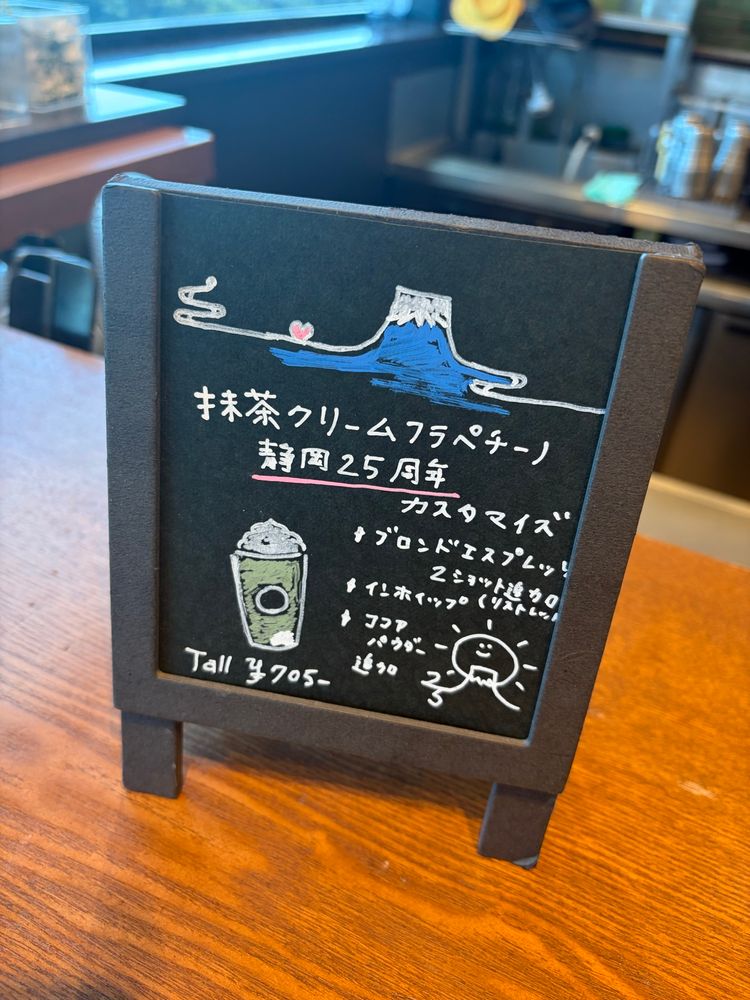 抹茶クリームフラペチーノ
静岡25周年
カスタマイズ
ブロンドエスプレッソ
2ショット追加
インホイップ(リストレット
ココア
パウダー
追加
25
Tall ¥705-